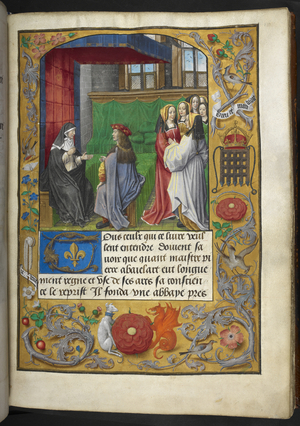 Ous ceulx qui ce livre veul
lent entendre doivent sa
voir que quant maistre pi
ere abaelart eut longue
ment regne et use de ses ars sa conscien
ce le reprist Il fonda une abbaye pres